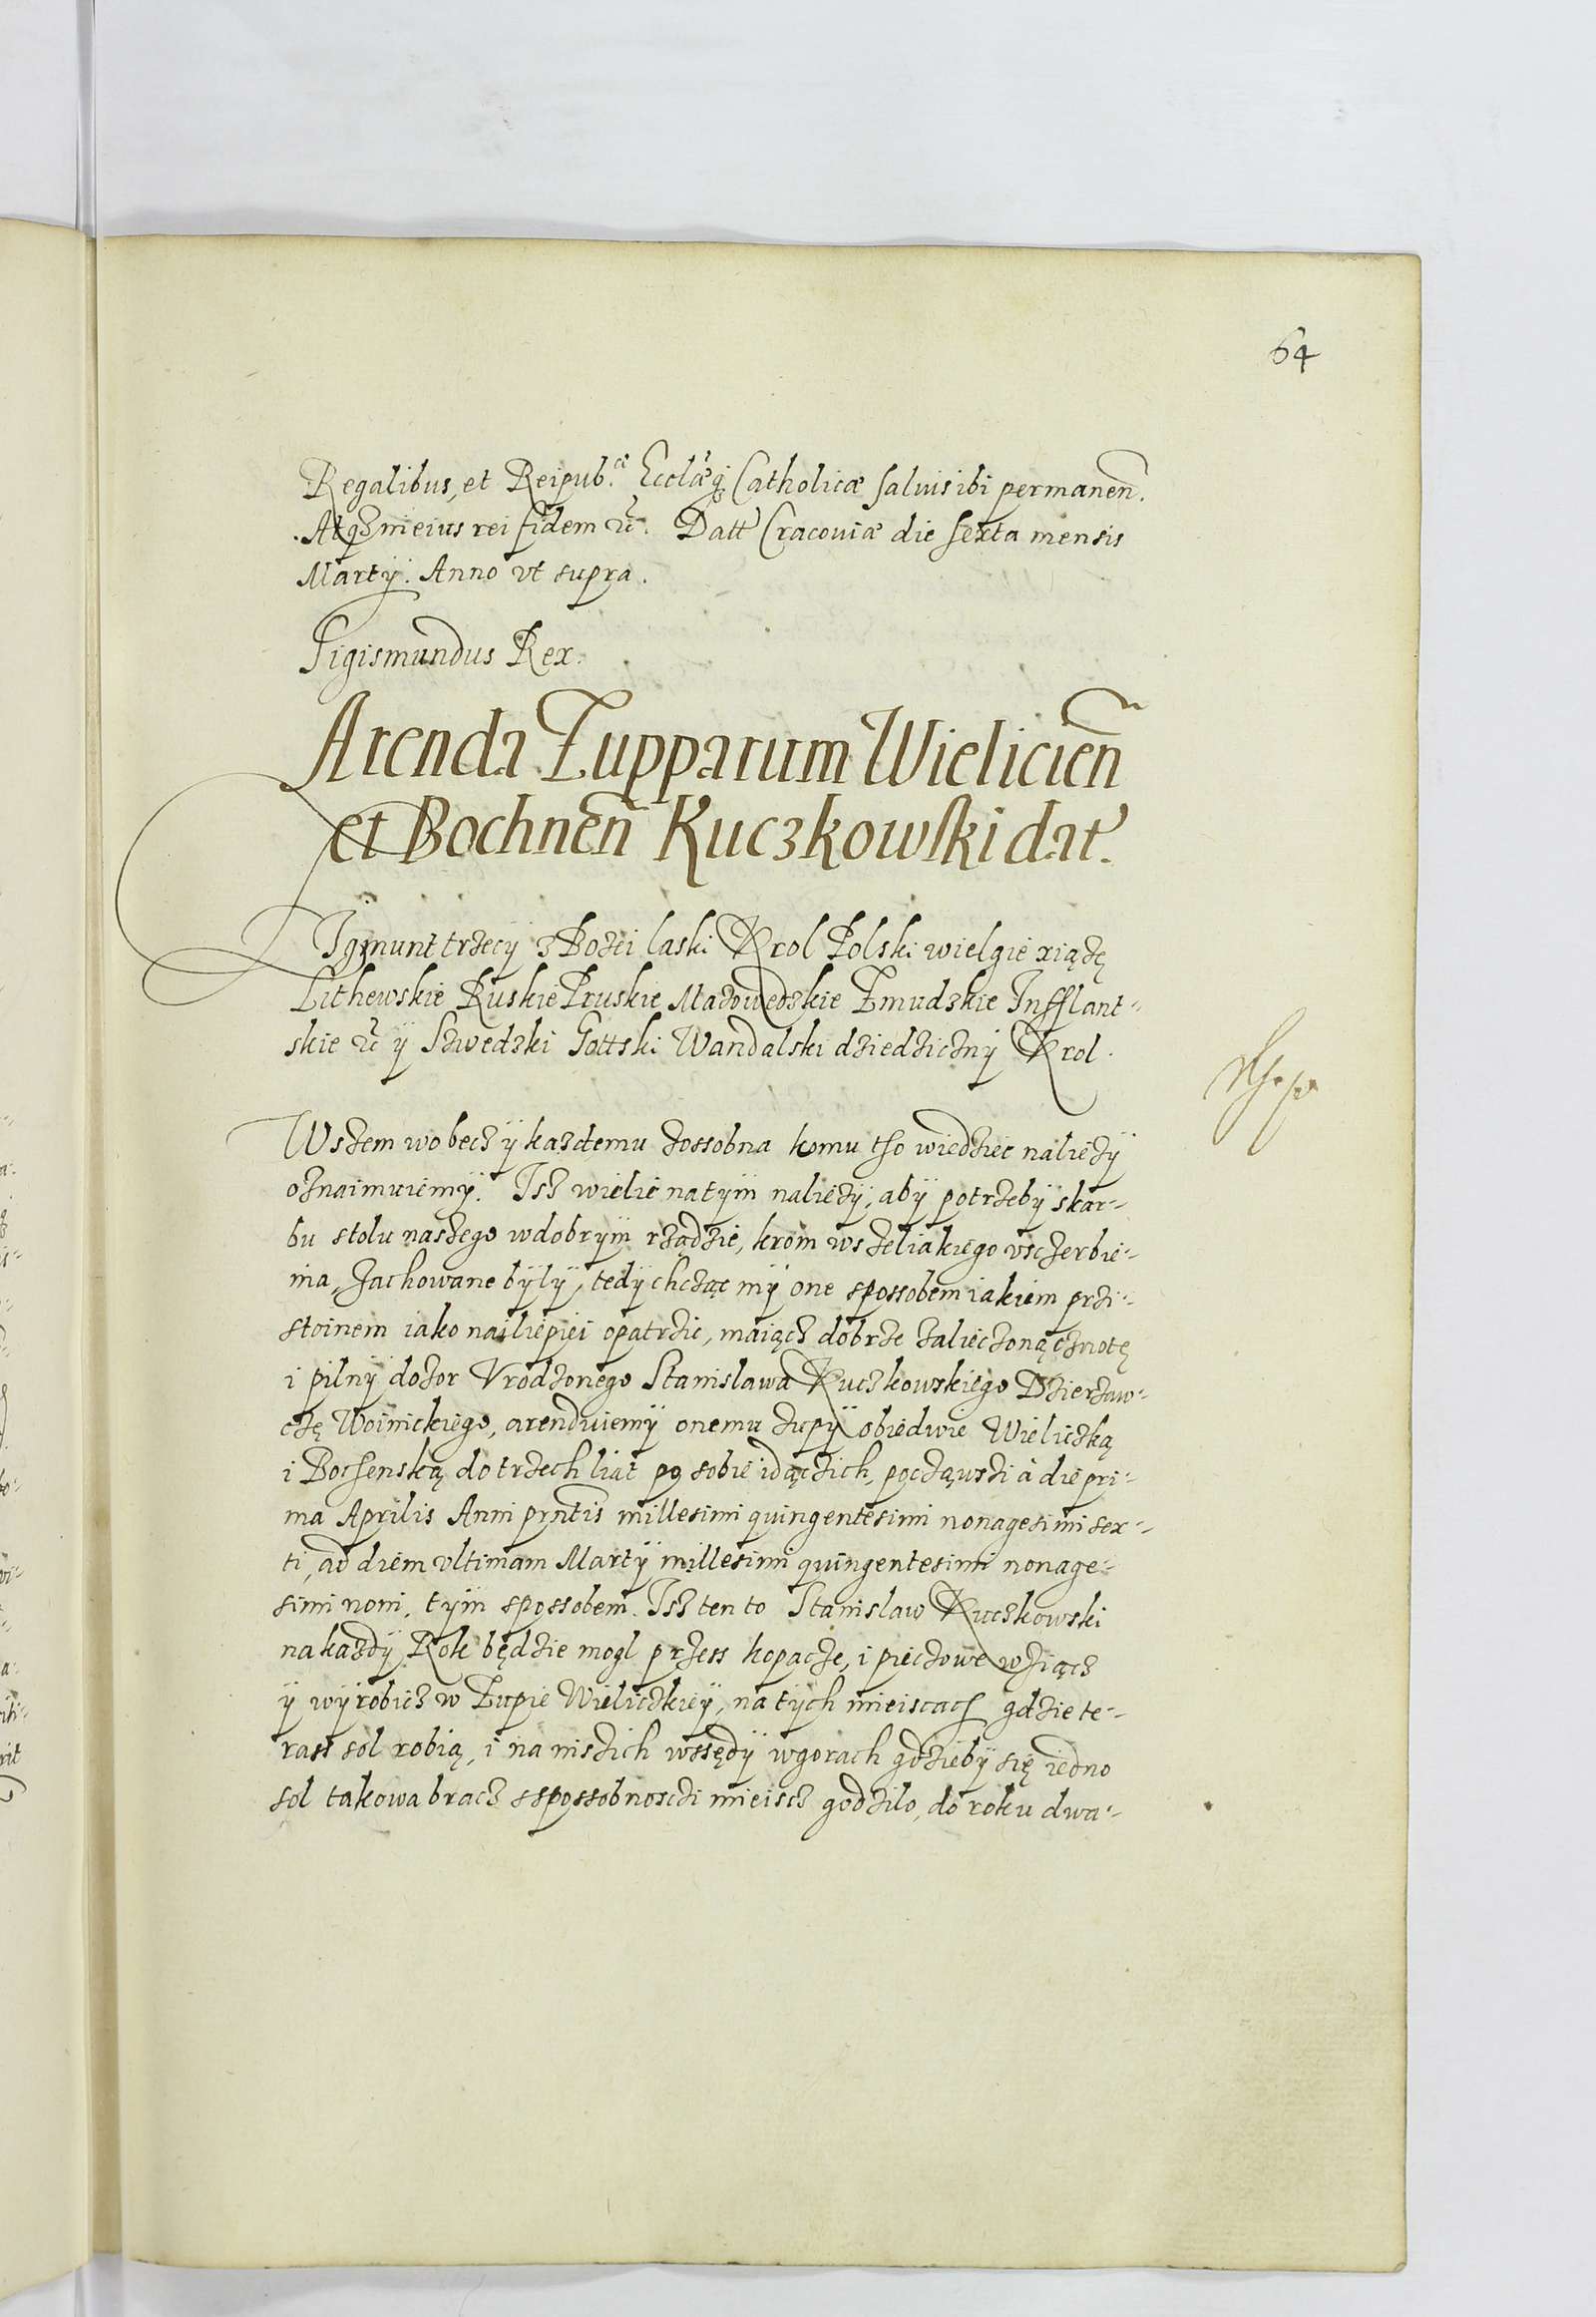 64
Regalibus, et Reipub.cæ Ecclæq3 Catholicæ salvis ibi permanen̄.
Atq3 in eius rei fidem etc̄. Datt Cracoviæ die sexta mensis
Martÿ. Anno vt supra.
Sigismundus Rex.
Arenda Zupparum Wielicien̄
et Bochnen̄ Kuczkowski dat.
Zÿgmunt trzecÿ z Bozei laski Krol Polski wielgie xiązę
Lithewskie Ruskie Pruskie Mazowedzkie Zmudzkie Infflant-
skie etc̄ ÿ Szwedzki Gottski Wandalski dziedzicznÿ Krol.
Wszem wobecz ÿ kazdemu zossobna komu tho wiedziec naliezÿ
oznaimuiemÿ. Isz wielie natÿm naliezÿ, abÿ potrzebÿ skar-
bu stolu naszego wdobrÿm rządzie, krom wszeliakiego vsczerbie-
nia, zachowane bÿlÿ, tedÿ chcząc mÿ one spossobem iakiem przi-
stoinem iako nailiepiei opatrzic, maiącz dobrze zalieczoną cznotę
i pilnÿ dozor Vrodzonego Stanislawa Kuczkowskiego Dzierzaw-
czę Woinickiego, arenduiemÿ onemu zupÿ obiedwie Wieliczką
i Bochenską do trzech liat po sobie idączich, począwszi à die pri-
ma Aprilis Anni prn̄tis millesimi quingentesimi nonagesimi sex-
ti, ad diem vltimam Martÿ millesimi quingentesimi nonage-
simi noni, tÿm spossobem. Isz ten to Stanislaw Kuczkowski
na kazdÿ Rok będzie mogl przess kopacze, i pieczowe wziącz
ÿ wÿrobicz w Zupie Wieliczkieÿ, na tÿch mieiscach gdzie te-
rass sol robią, i na niszich wssędÿ wgorach gdziebÿ się iedno
sol takowa bracz sspossobnosczi mieiscz godzilo, do roku dwa-